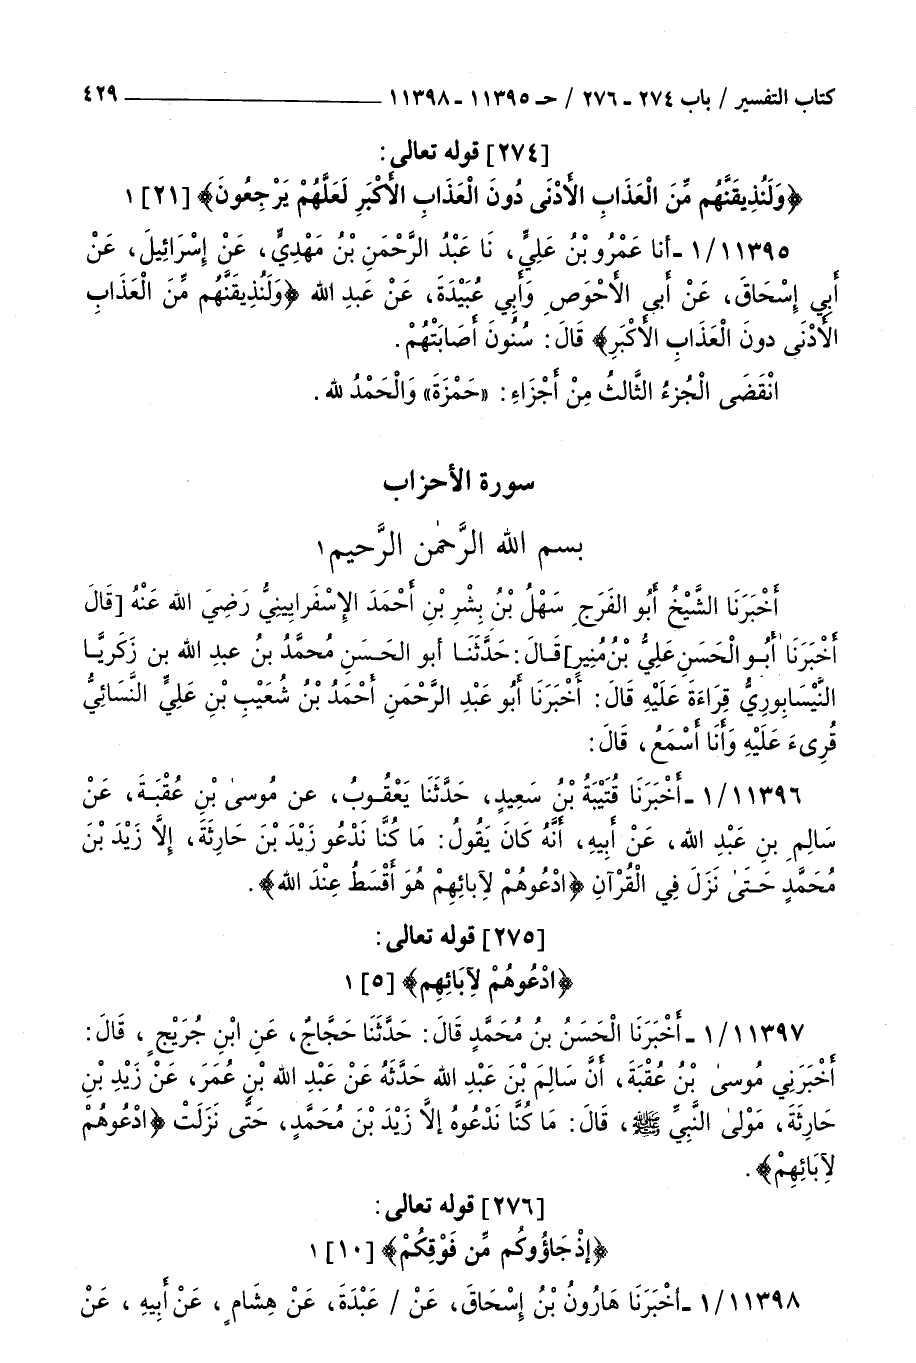 كتاب التفسير / باب ٢٧٤ - ٢٧٦ / حـ ١١٣٩٥ - ١١٣٩٨ ــــــــــــــــــــ ٤٢٩
[٢٧٤] قوله تعالى:
﴿وَلَنُذِيقَنَّهُم مِّنَ الْعَذَابِ الأَدْنَى دُونَ الْعَذَابِ الأَكْبَرِ لَعَلَّهُمْ يَرْجِعُونَ﴾ [٢١] ١
١/١١٣٩٥ - أنا عَمْرُو بْنُ عَلِيٍّ، نَا عَبْدُ الرَّحْمَنِ بْنُ مَهْدِيٍّ، عَنْ إِسْرَائِيلَ، عَنْ
أَبِي إِسْحَاقَ، عَنْ أَبِي الأَحْوَصِ وَأَبِي عُبَيْدَةَ، عَنْ عَبدِ الله ﴿وَلَنُذِيقَنَّهُم مِّنَ الْعَذَابِ
الأَدْنَى دونَ الْعَذَابِ الأَكْبَرِ﴾ قَالَ: سُنُونَ أَصَابَتْهُمْ.
انْقَضَى الْجُزءُ الثَّالثُ مِنْ أَجْزَاءِ: «حَمْزَةَ» وَالْحَمْدُ لله.
سورة الأحزاب
بسم الله الرَّحمٰن الرَّحيم ١
أَخْبَرَنَا الشَّيْخُ أَبُو الفَرَجِ سَهْلُ بْنُ بِشْرِ بْنِ أَحْمَدَ الإِسْفَرايِينِيُّ رَضِيَ الله عَنْهُ [قَالَ
أَخْبَرَنَا أَبُو الْحَسَنِ عَلِيُّ بْنُ مُنِيرٍ] قَالَ: حَدَّثَنَا أبو الحَسَنِ مُحمَّدُ بنُ عبدِ الله بن زَكَرِيَّا
النَّيْسَابُورِيُّ قِرَاءَةً عَلَيْهِ قَالَ: أَخْبَرَنَا أَبُو عَبْدِ الرَّحْمَنِ أَحْمَدُ بْنُ شُعَيْبِ بْنِ عَلِيٍّ النَّسَائِيُّ
قُرِىءَ عَلَيْهِ وَأَنَا أَسْمَعُ، قَالَ:
١/١١٣٩٦ - أَخْبَرَنَا قُتَيْبَةُ بْنُ سَعِيدٍ، حَدَّثَنَا يَعْقُوبُ، عن مُوسىٰ بْنِ عُقْبَةَ، عَنْ
سَالِمِ بنِ عَبْدِ الله، عَنْ أَبِيهِ، أَنَّهُ كَانَ يَقُولُ: مَا كُنَّا نَدْعُو زَيْدَ بْنَ حَارِثَةَ، إِلاَّ زَيْدَ بْنَ
مُحَمَّدٍ حَتىٰ نَزَلَ فِي الْقُرْآنِ ﴿ادْعُوهُمْ لآبائِهِمْ هُوَ أَقْسَطُ عِنْدَ الله﴾.
[٢٧٥] قوله تعالى:
﴿ادْعُوهُمْ لِآبَائِهِم﴾ [٥] ١
١/١١٣٩٧ - أَخْبَرَنَا الْحَسَنُ بنُ مُحَمَّدٍ قَالَ: حَدَّثَنَا حَجَّاجٌ، عَنِ ابْنِ جُرَيْجٍ، قَالَ:
أَخْبَرَنِي مُوسىٰ بْنُ عُقْبَةَ، أَنَّ سَالِمَ بْنَ عَبْدِ الله حَدَّثَهُ عَنْ عَبْدِ الله بْنِ عُمَرَ، عَنْ زَيْدِ بْنِ
حَارِثَةَ، مَوْلىٰ النَّبِيِّ ﷺ، قَالَ: مَا كُنَّا نَدْعُوهُ إلاَّ زَيْدَ بْنَ مُحَمَّدٍ، حَتَّى نَزَلَتْ ﴿ادْعُوهُمْ
لآبَائِهِمْ﴾.
[٢٧٦] قوله تعالى:
﴿إذْ جَاؤُوكُم مِّن فَوْقِكُمْ﴾ [١٠] ١
١/١١٣٩٨ - أَخْبَرَنَا هَارُونُ بْنُ إِسْحَاقَ، عَنْ / عَبْدَةَ، عَنْ هِشَامٍ، عَنْ أَبِيهِ، عَنْ